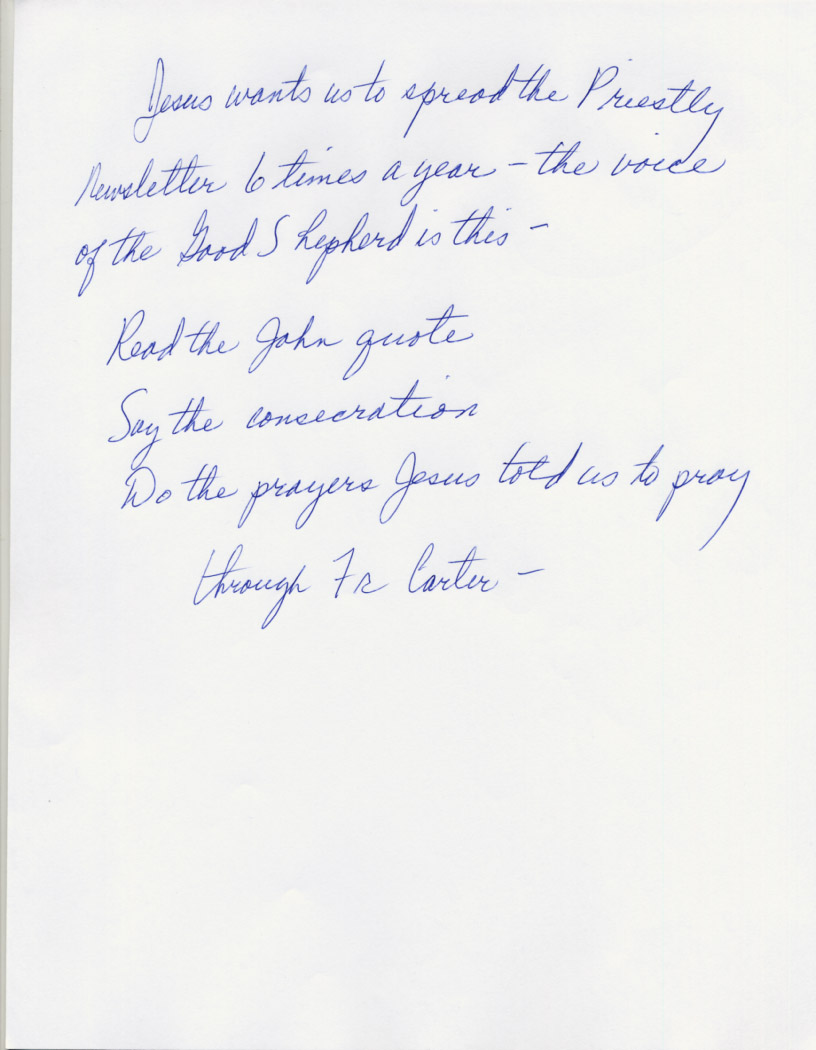 Jesus wants us to spread the Priestly
Newsletter 6 times a year – the voice
of the Good Shepherd is this –
Read the John quote
Say the consecration
Do the prayers Jesus told us to pray
through Fr Carter –